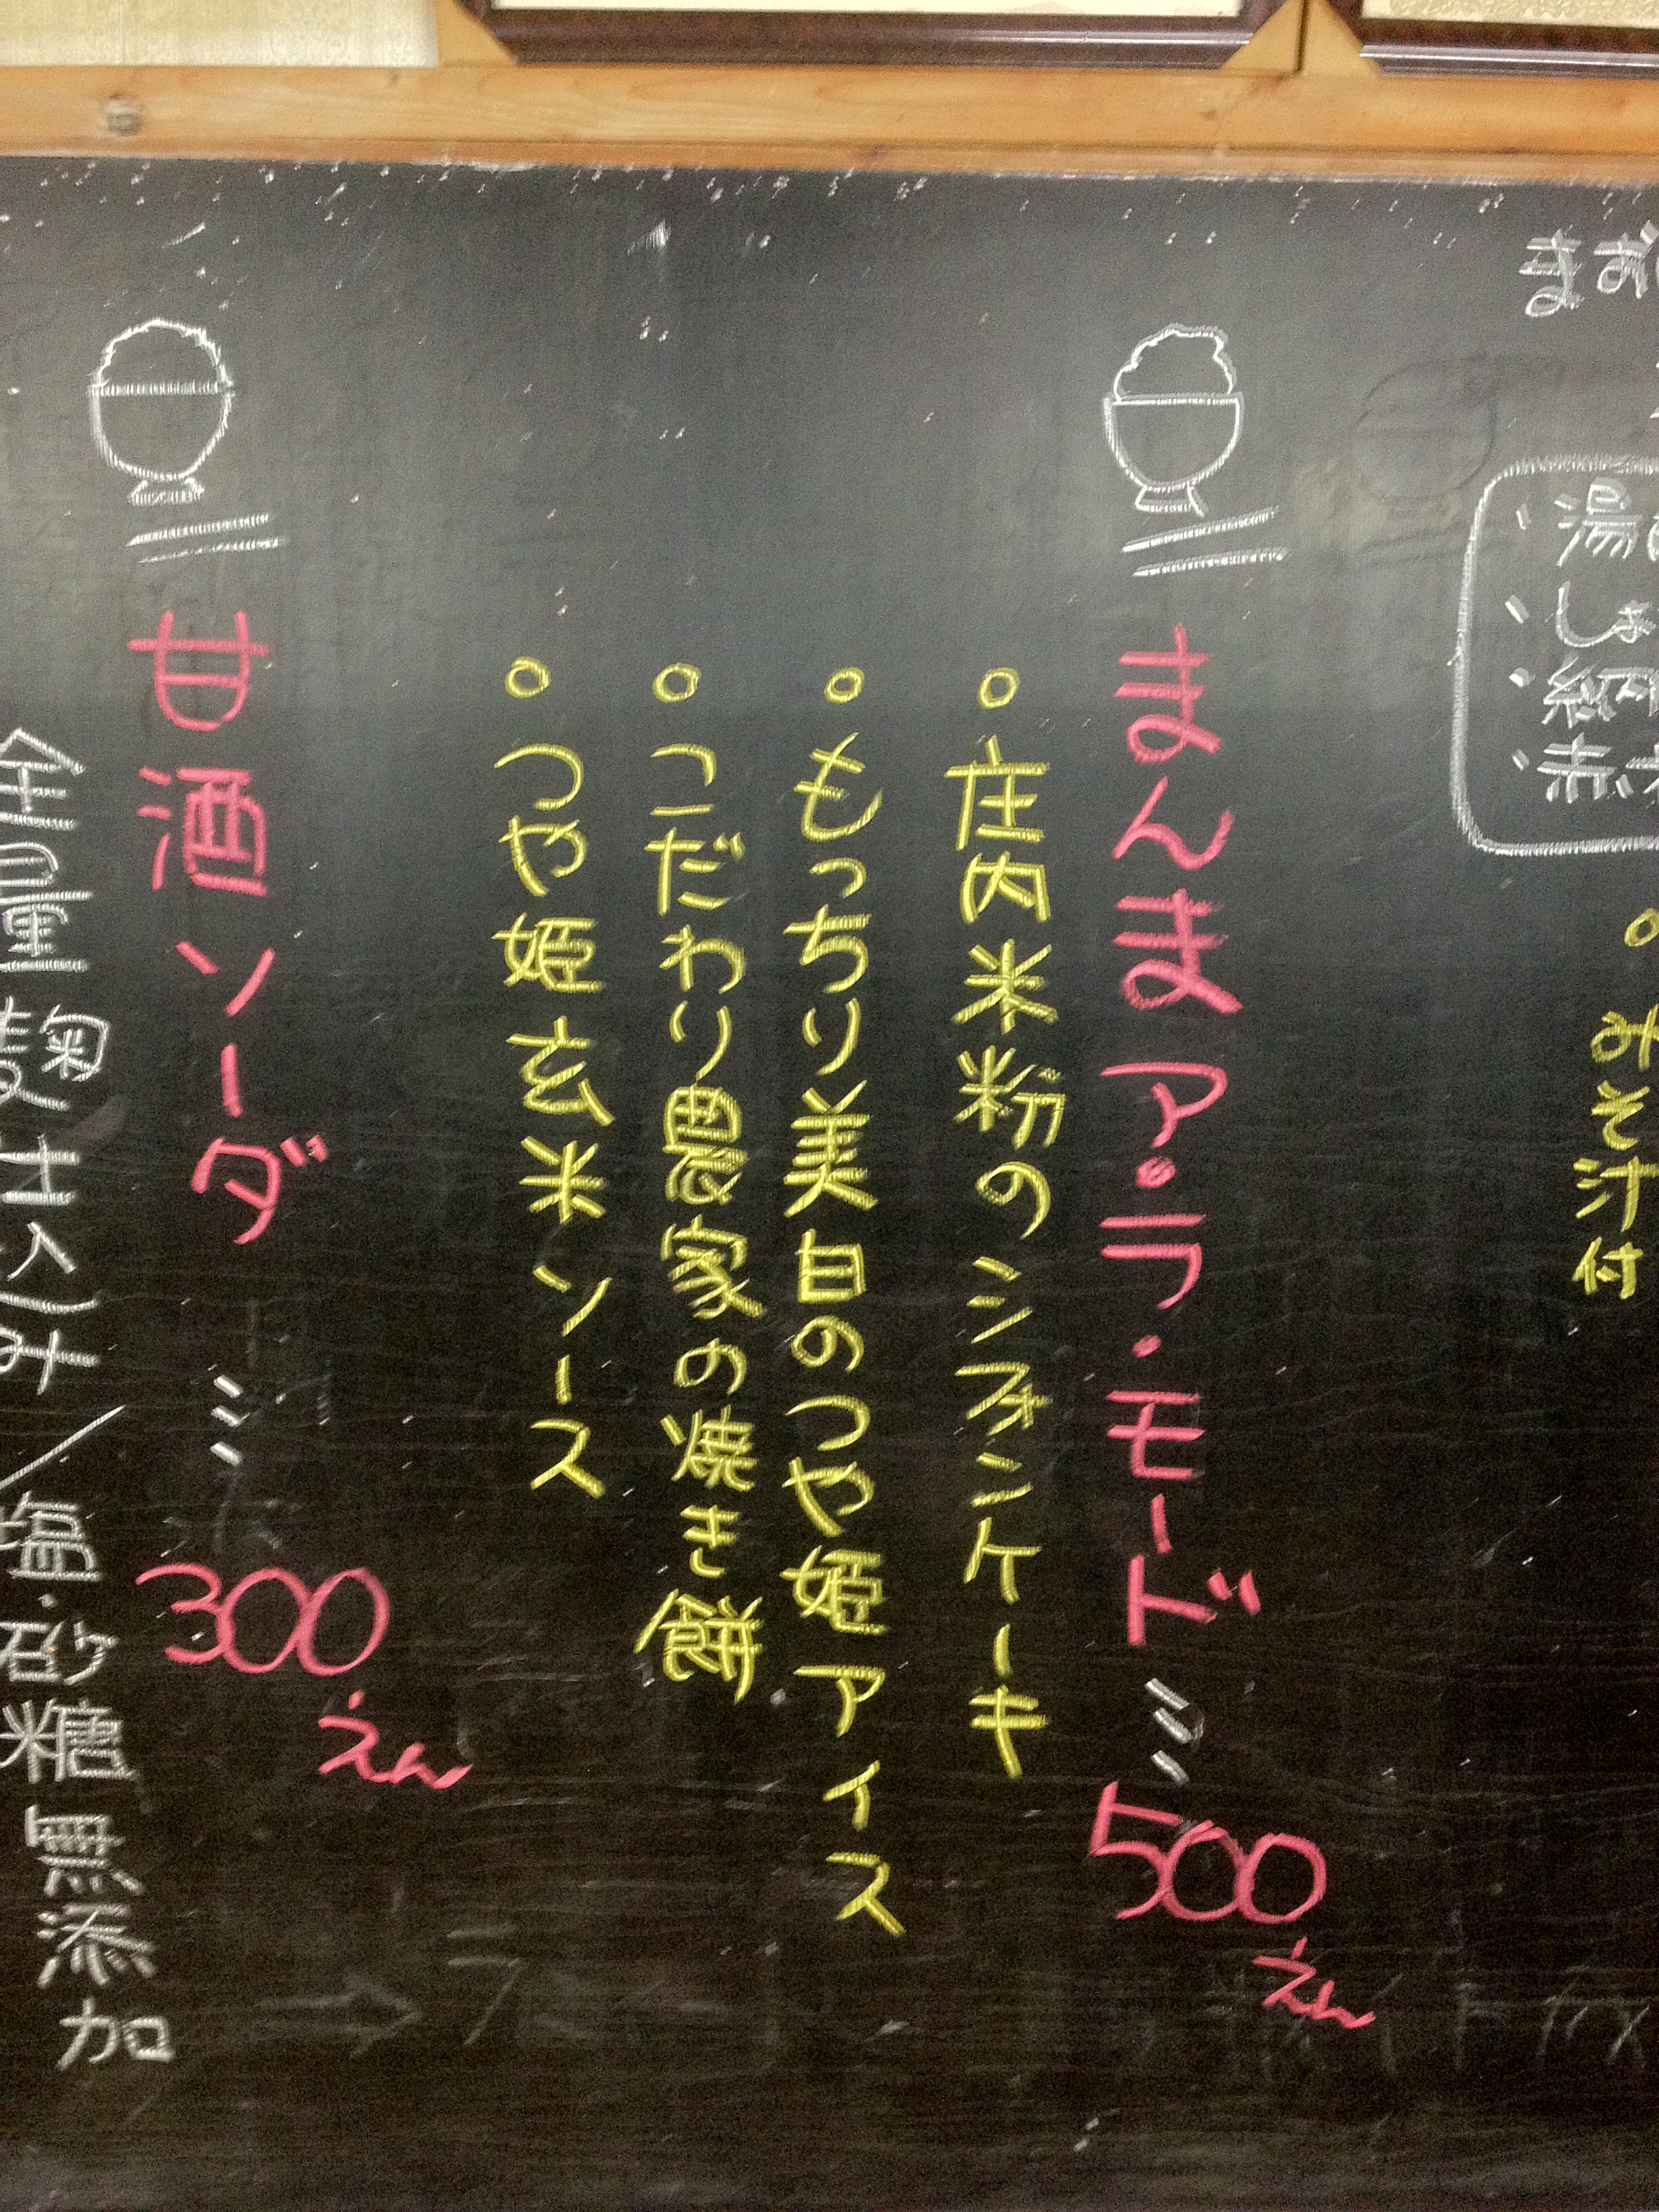 みそ汁付
まんまア・ラ・モード
500えん
庄内米粉のシフォンケーキ
もっちり美白のつや姫アイス
こだわり農家の焼き餅
つや姫玄米ソース
甘酒ソーダ
300えん
全量麹仕込み/塩・砂糖無添加